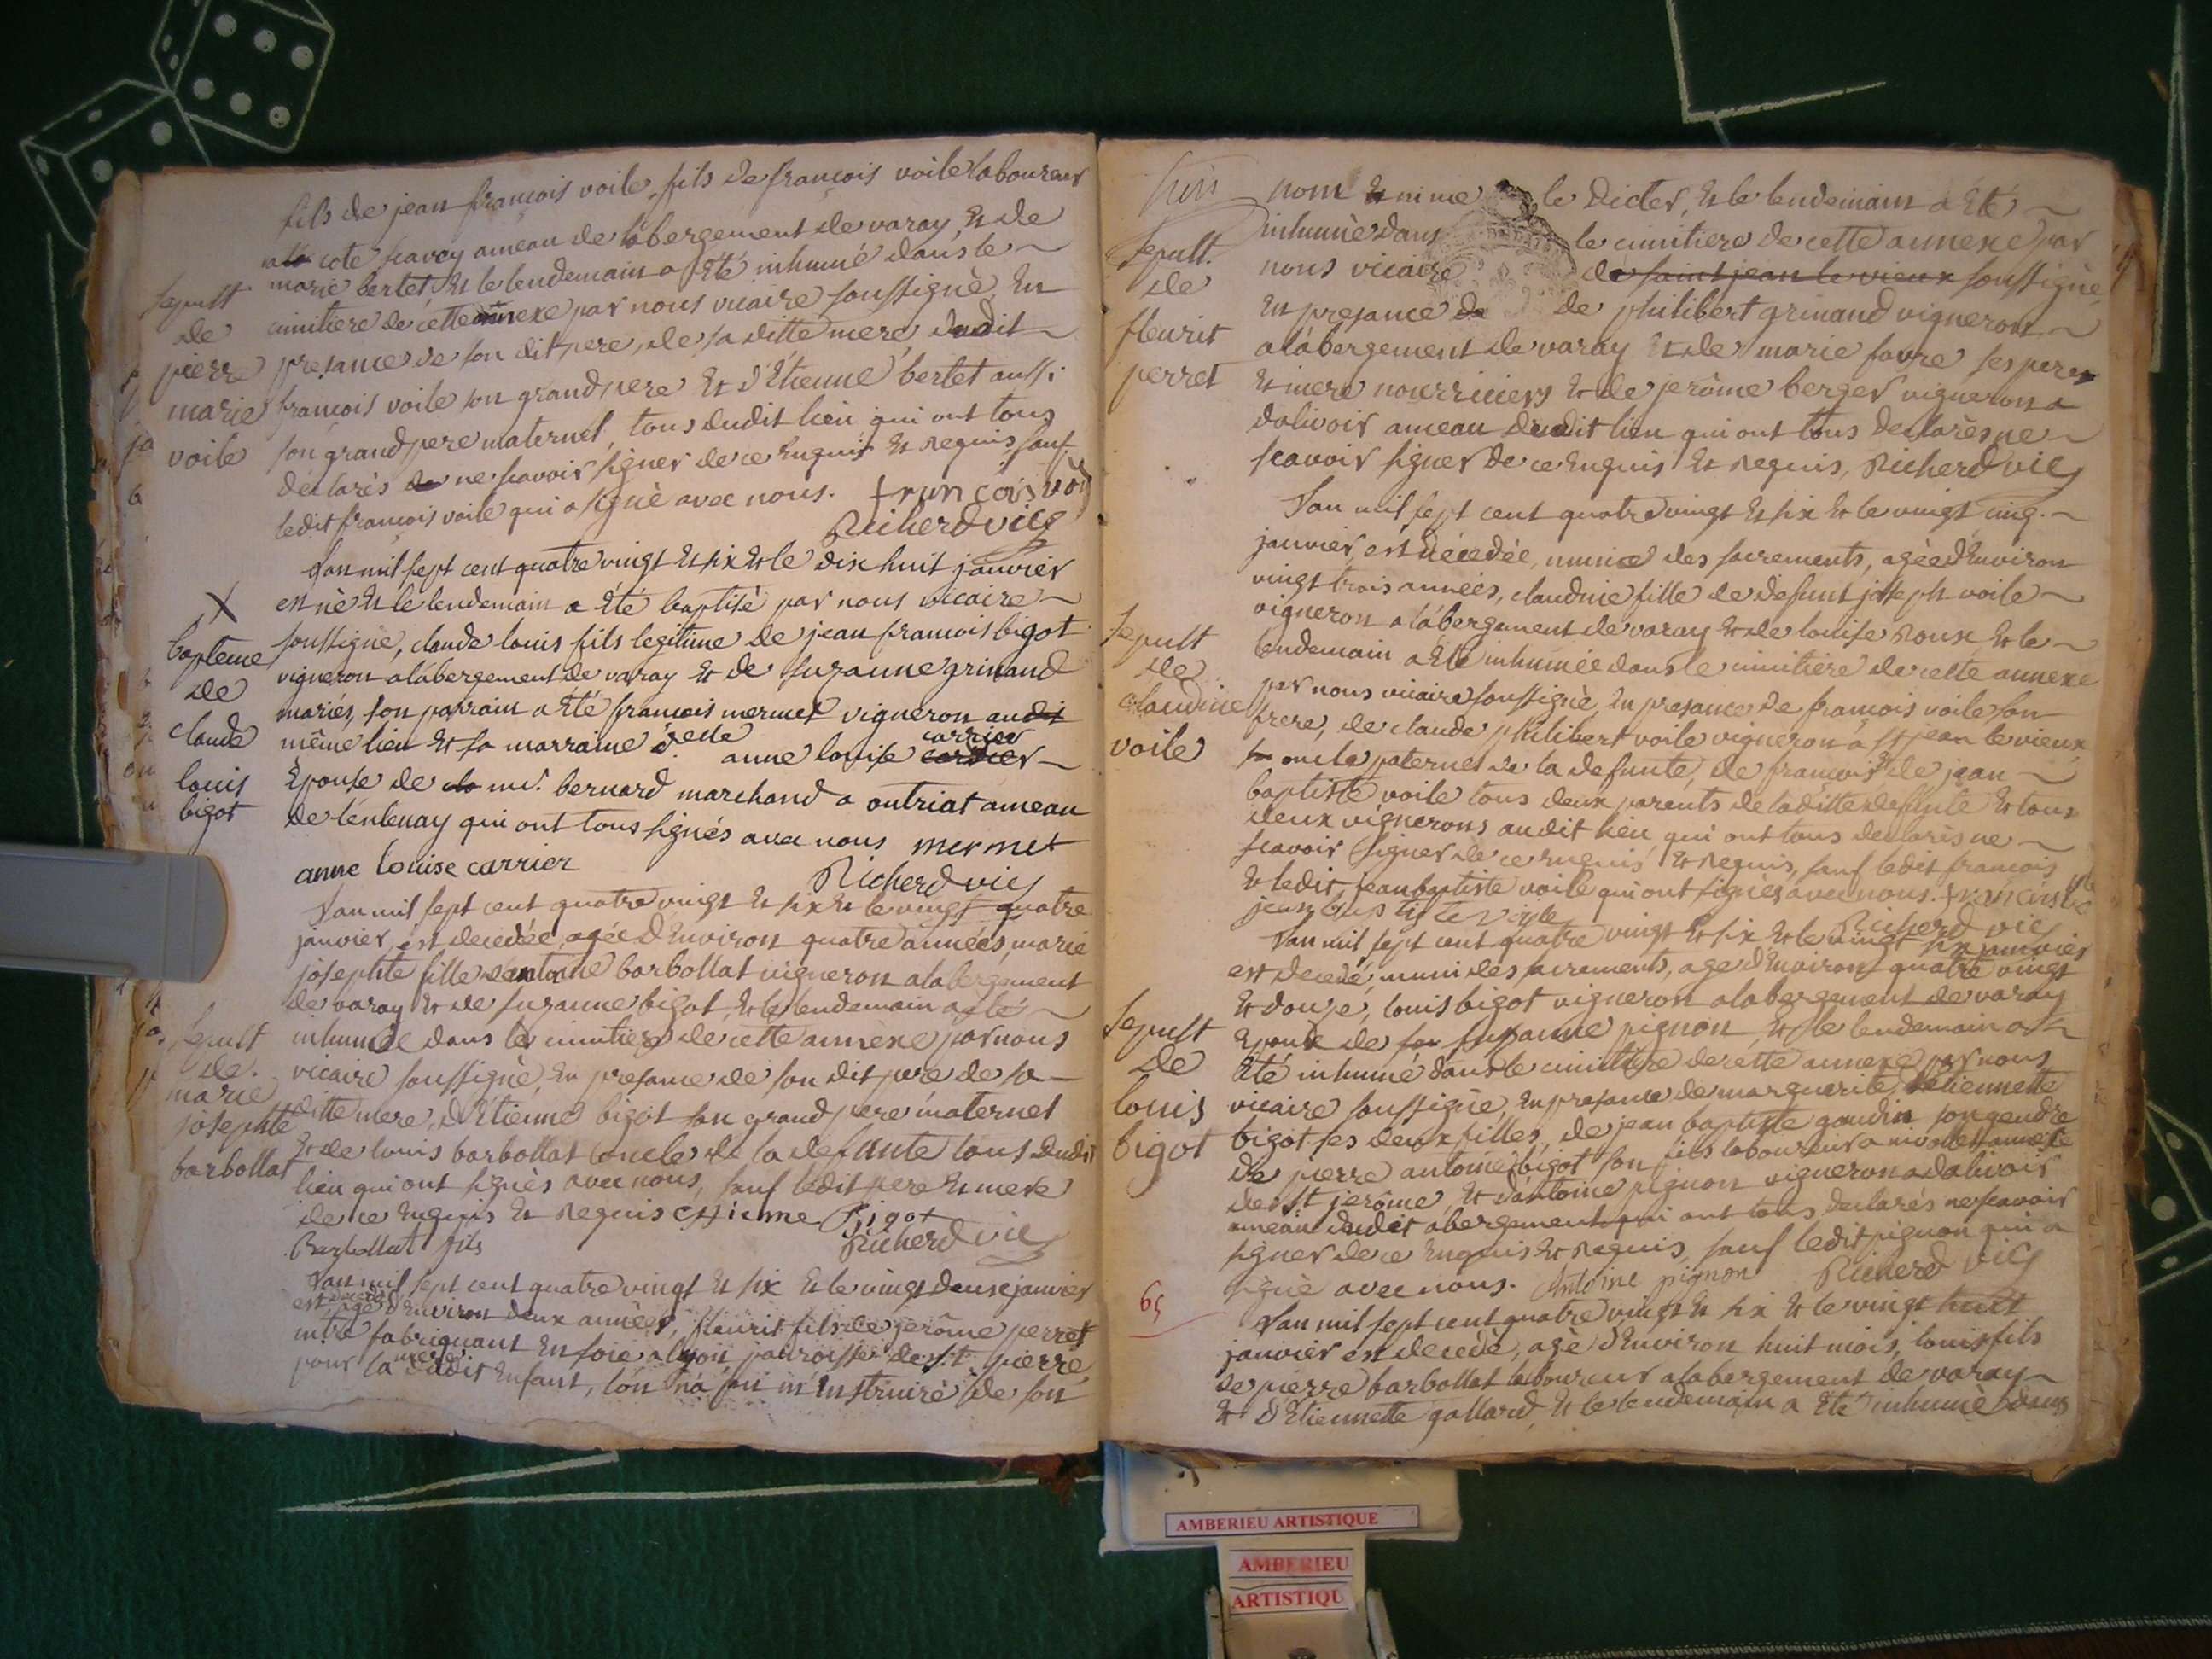 fils de jean françois voile, fils de françois voile laboureur
a la cote savey ameau de l'abergement de varay, et de
marie bertet et le lendemain a été inhumé dans le
cimitiere de cette annexe par nous vicaire soussigné, en
presance de son dit pere, de sa ditte mere, dudit
françois voile son grand pere et d'étienne bertet aussi
son grand pere maternel, tous dudit lieu qui ont tous
declarés de ne scavoir signer de ce enquis et requis, sauf
ledit françois voile qui a signé avec nous.
Richerd vic
sepult
de
pierre
marie
voile
L'an mil sept cent quatre vingt et six et le dix huit janvier
est né et le lendemain a été baptisé par nous vicaire
soussigné, claude louis fils legitime de jean francois bigot
vigneron a l'abergement de varay et de suzanne grinand
mariés, son parrain a été francois mermet vigneron audit
même lieu et sa marraine delle anne louise cordier carrier
épouse de mr. bernard marchand a outriat ameau
de lentenay qui ont tous signés avec nous mermet
anne louise carrier
Richerd vic
X
bapteme
de
claude
louis
bigot
L'an mil sept cent quatre vingt et six et le vingt quatre
janvier, est decedée, agée d'environ quatre années, marie
josephte fille d'antoine barbollat vigneron a labergement
de varay et de suzanne bigot, et le lendemain a été
inhumée dans le cimitiere de cette annexe par nous
vicaire soussigné, en presance de son dit pere de sa
ditte mere, d'étienne bigot son grand pere maternel
et de louis barbollat oncle de la defunte tous dudit
lieu qui ont signés avec nous, sauf ledit pere et mere
de ce enquis et requis etienne Bigot
Barbollat fils
Richerd vic
sepult
de
marie
josephte
barbollat
L'an mil sept cent quatre vingt et six et le vingt deux janvier
est decedé agé d'environ deux années, fleurit fils de jerôme perret
mtre fabriquant en soie a lyon, paroisse de st. pierre,
pour la mere dudit enfant, l'on n'a pu m'instruire de son
nom et ni me le dicter, et le lendemain a été
inhumé dans le cimitiere de cette annexe par
nous vicaire de saint jean le vieux soussigné,
en presance de de philibert grinand vigneron
a l'abergement de varay et de marie favre ses pere
et mere nourriciers et de jerôme berger vigneron a
dalivoir ameau dudit lieu qui ont tous declarés ne
scavoir signer de ce enquis et requis, Richerd vic
sepult.
de
fleurit
perret
L'an mil sept cent quatre vingt et six et le vingt cinq
janvier, est décedée, munie des sacrements, agée d'environ
vingt trois années, claudine fille de defunt joseph voile
vigneron a l'abergement de varay et de louise roux et le
lendemain a été inhumée dans le cimitiere de cette annexe
par nous vicaire soussigné, en presance de françois voile son
frere, de claude philibert voile vigneron à st jean le vieux,
oncle paternel de la defunte, de françois et de jean
baptiste voile tous deux parents de laditte defunte et tous
deux vignerons audit lieu qui ont tous declarés ne
scavoir signer de ce enquis et requis, sauf ledit francois
et ledit jean baptiste voile qui ont signés avec nous.
jean baptiste voile
Richerd vic
sepult
de
claudine
voile
L'an mil sept cent quatre vingt et six et le vingt six janvier
est decedé, muni des sacrements, agé d'environ quatre vingt
et douze, louis bigot vigneron a labergement de varay
epoux de suzanne pignon, et le lendemain a
été inhumé dans le cimitiere de cette annexe par nous
vicaire soussigné, en presance de marguerite, d'etiennette
bigot ses deux filles, de jean baptiste goudin son gendre
de pierre antoine bigot son fils laboureur a annexe
de st jerôme, et d'antoine pignon vigneron a dalivoir
ameau dudit abergement qui ont tous declarés ne scavoir
signer de ce enquis et requis, sauf ledit pignon qui a
signé avec nous. Antoine pignon Richerd vic
sepult
de
louis
bigot
65
L'an mil sept cent quatre vingt et six et le vingt huit
janvier est decedé, agé d'environ huit mois, louis fils
de pierre barbollat laboureur a labergement de varay
et d'etiennette gallard, et le lendemain a été inhumé dans
AMBERIEU ARTISTIQUE
AMBERIEU
ARTISTIQU